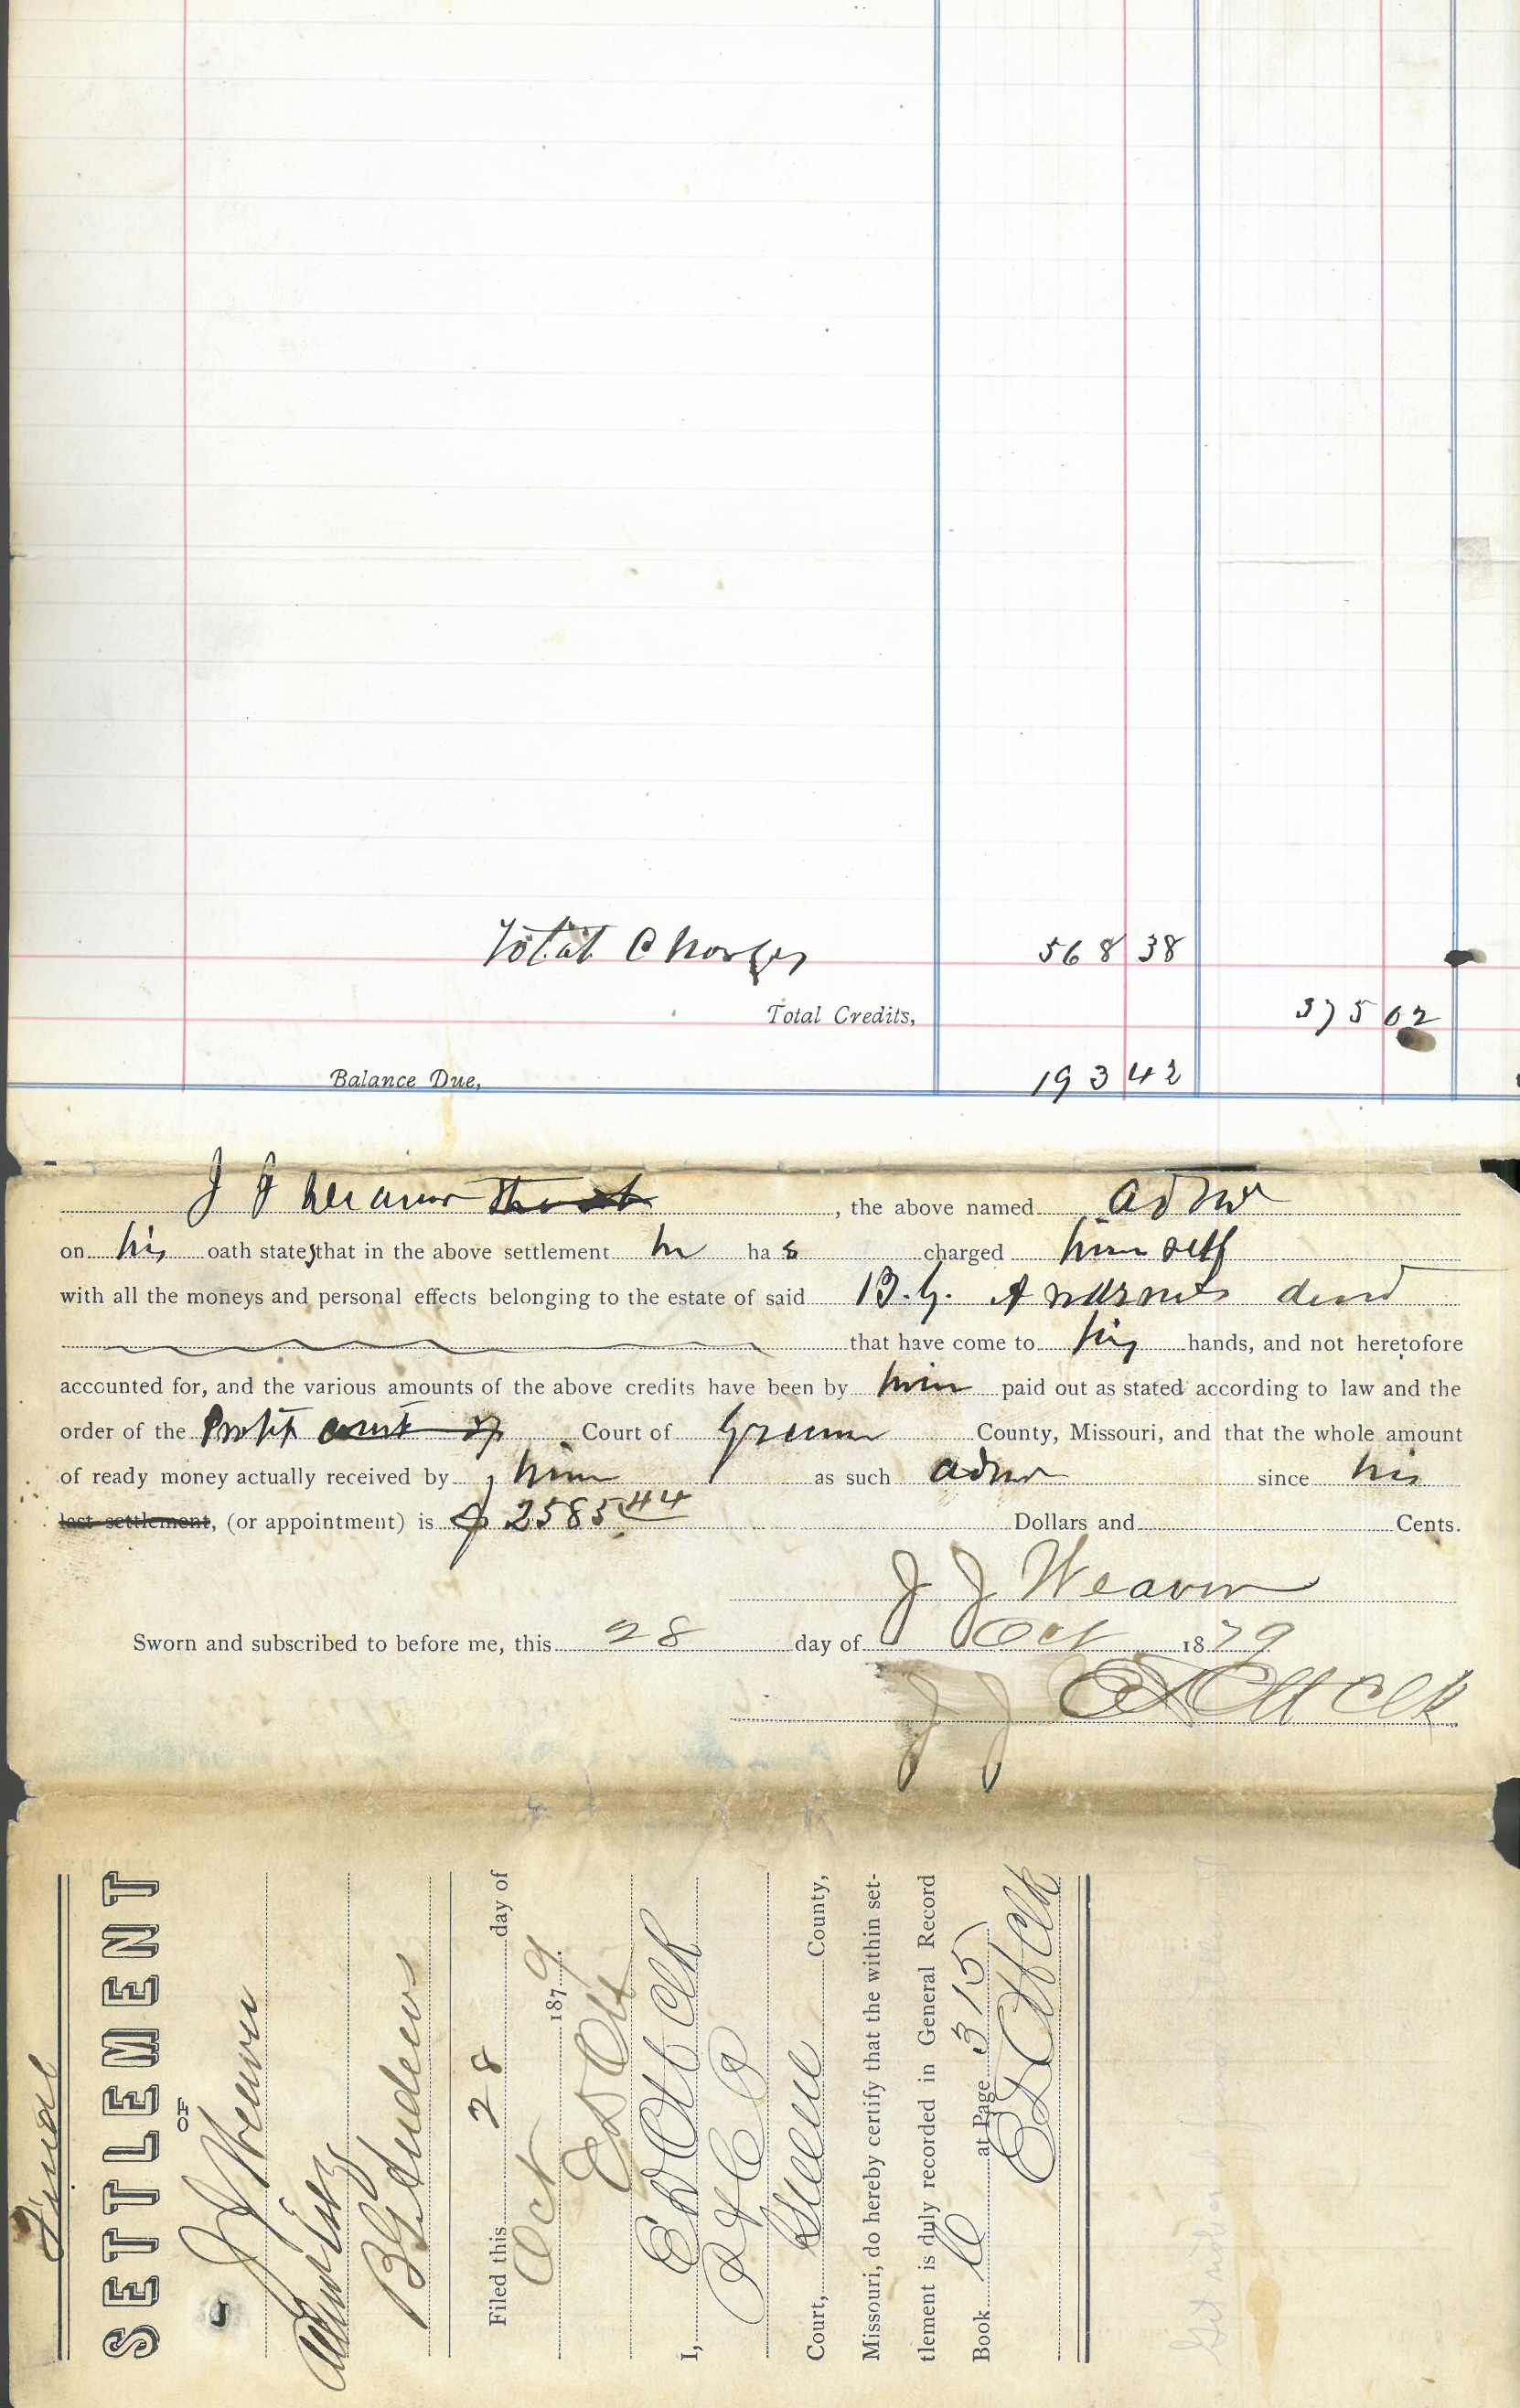 Total Charges 568 38
Total Credits, 375 02
Balance Due, 193 42
J J Weaver, the above named admr
on his oath states that in the above settlement he has charged himself
with all the moneys and personal effects belonging to the estate of said B. G. Andrews decd
that have come to his hands, and not heretofore
accounted for, and the various amounts of the above credits have been by him paid out as stated according to law and the
order of the Probt court of Court of Greene County, Missouri, and that the whole amount
of ready money actually received by him as such admr since his
last settlement, (or appointment) is $ 2585 44 Dollars and Cents.
J J Weaver
Sworn and subscribed to before me, this 28 day of Oct 1879
J J E D Ott Clk
Final
SETTLEMENT
OF
J J Weaver
Admr
B G Andrews
Filed this 28 day of
Oct 1879.
E D Ott
I, E D Ott Clk
Court, Greene County,
Missouri, do hereby certify that the within set-
tlement is duly recorded in General Record
Book at Page 315
E D Ott Clk